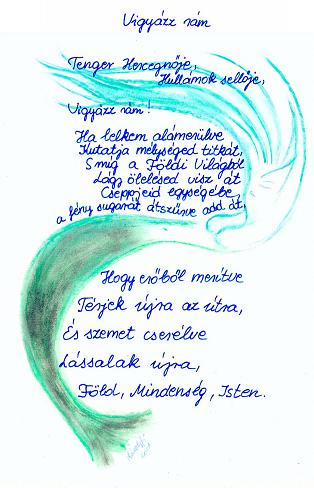 Vigyázz rám
Tenger Hercegnője,
Hullámok sellője,
Vigyázz rám!
Ha lelkem alámerülve
Kutatja mélységed titkát,
S míg a Földi Világból
Lágy ölelésed visz át
Cseppjeid egységébe
a fény sugarát átszűrve add át,
Hogy erőből merítve
Térjek újra az útra,
És szemet cserélve
Lássalak újra,
Föld, Mindenség, Isten.